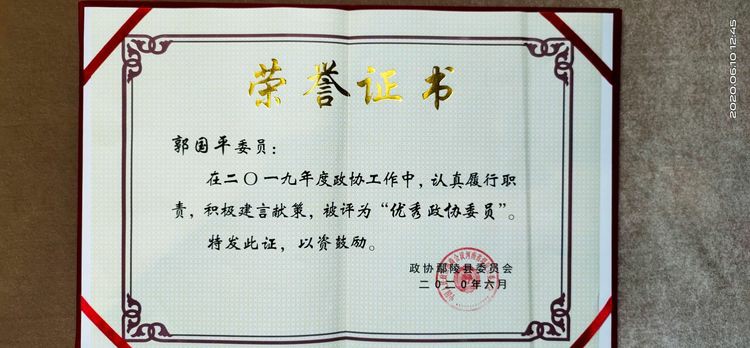 荣誉证书
郭国平委员：
在二〇一九年度政协工作中，认真履行职
责，积极建言献策，被评为“优秀政协委员”。
特发此证，以资鼓励。
政协鄢陵县委员会
二〇二〇年六月
2020.06.10 12:45